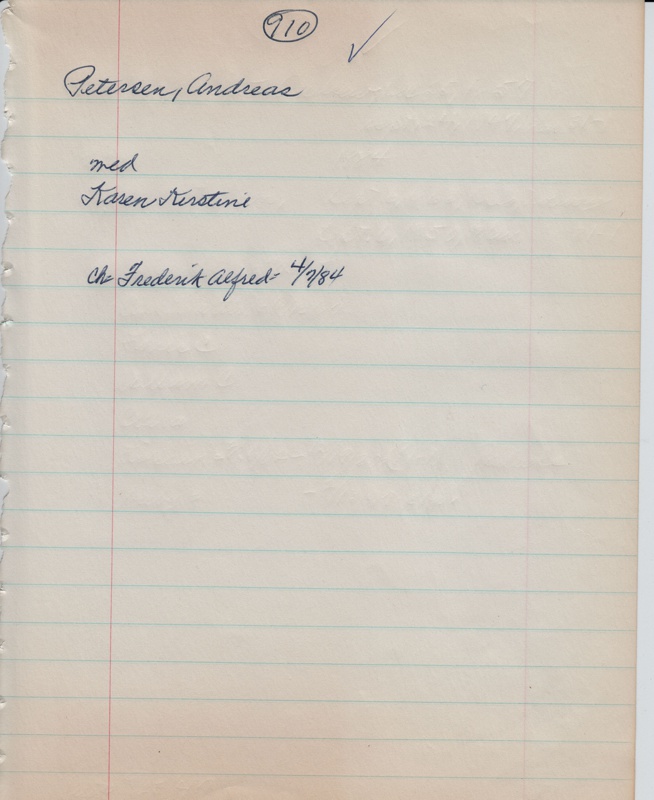 910
Petersen, Andreas
med
Karen Kirstine
Ch- Frederik Alfred- 4/7/84